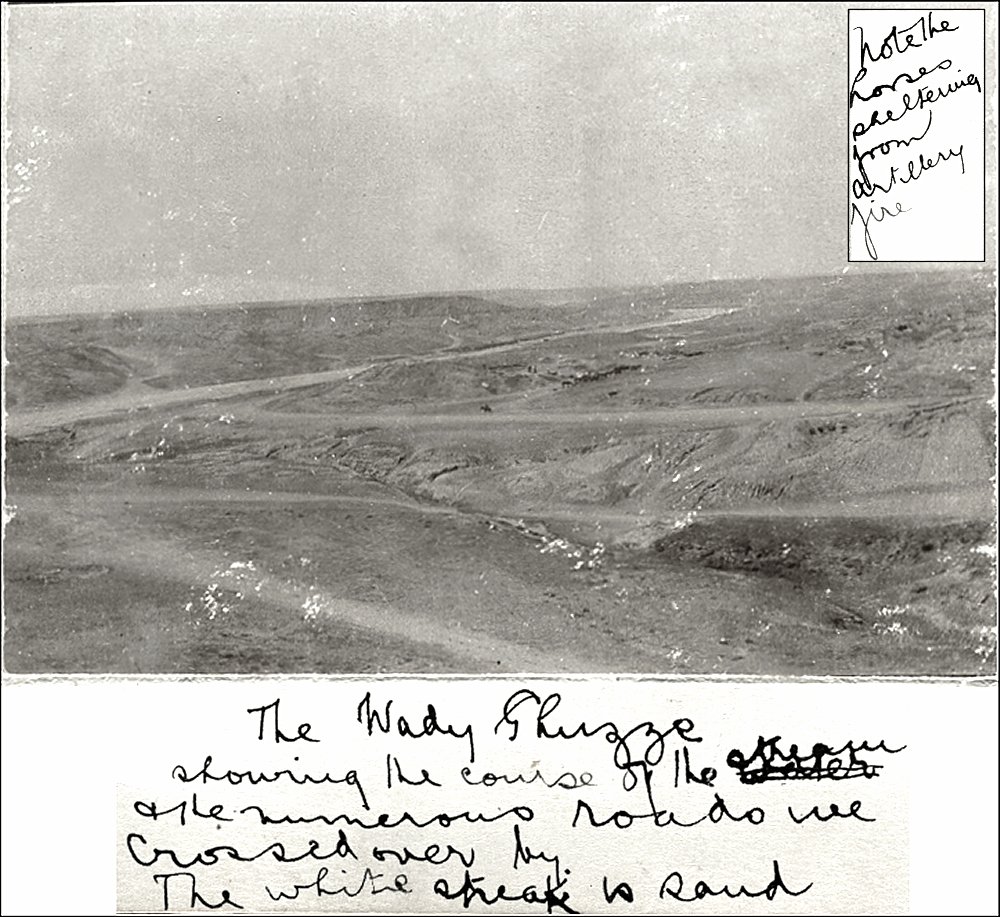 Note the
horses
sheltering
from
artillery
fire
The Wady Ghuzze
showing the course of the stream
& the numerous roads we
crossed over by.
The white streak is sand